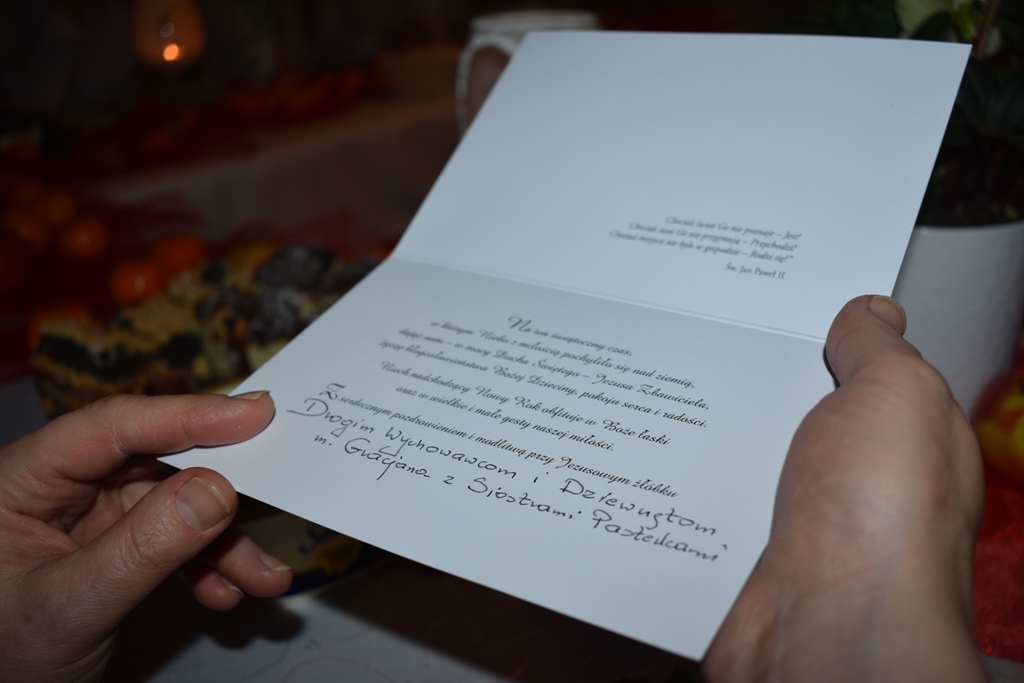 Chociaż świat Go nie poznaje – Jest!
Chociaż swoi Go nie przyjmują – Przychodzi!
Chociaż miejsca nie było w gospodzie – Rodzi się!"
Św. Jan Paweł II
Na ten świąteczny czas,
w którym Niebo z miłością pochyliło się nad ziemią,
dając nam – w mocy Ducha Świętego – Jezusa Zbawiciela,
życzę błogosławieństwa Bożej Dzieciny, pokoju serca i radości.
Niech nadchodzący Nowy Rok obfituje w Boże łaski
oraz w wielkie i małe gesty naszej miłości.
Z serdecznym pozdrowieniem i modlitwą przy Jezusowym żłóbku
Drogim Wychowawcom i Dziewczętom
m. Gracjana z Siostrami Pasterkami